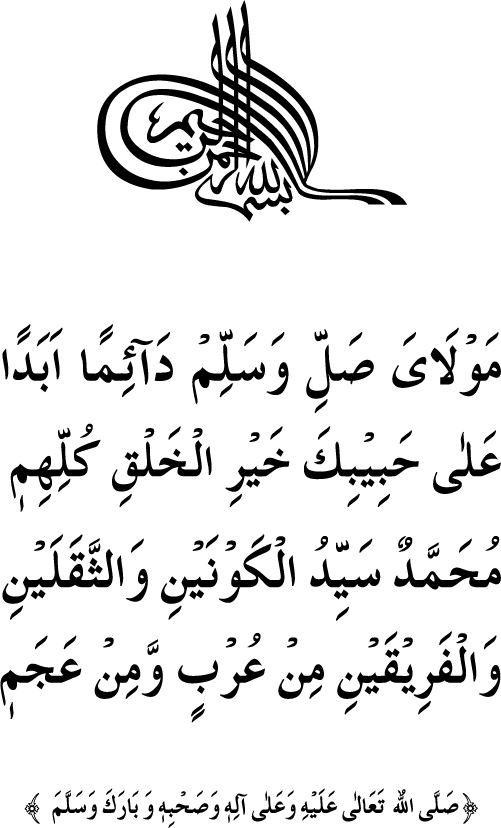 بسم الله الرحمن الرحيم
مَوْلَاىَ صَلِّ وَسَلِّمْ دَآئِمًا اَبَدًا
عَلٰى حَبِيْبِكَ خَيْرِ الْخَلْقِ كُلِّهِمٖ
مُحَمَّدٌ سَيِّدُ الْكَوْنَيْنِ وَالثَّقَلَيْنِ
وَالْفَرِيْقَيْنِ مِنْ عُرْبٍ وَّمِنْ عَجَمٖ
﴿صَلَّى اللهُ تَعَالٰى عَلَيْهِ وَعَلٰى آلِهٖ وَصَحْبِهٖ وَ بَارَكَ وَسَلَّمَ ﴾